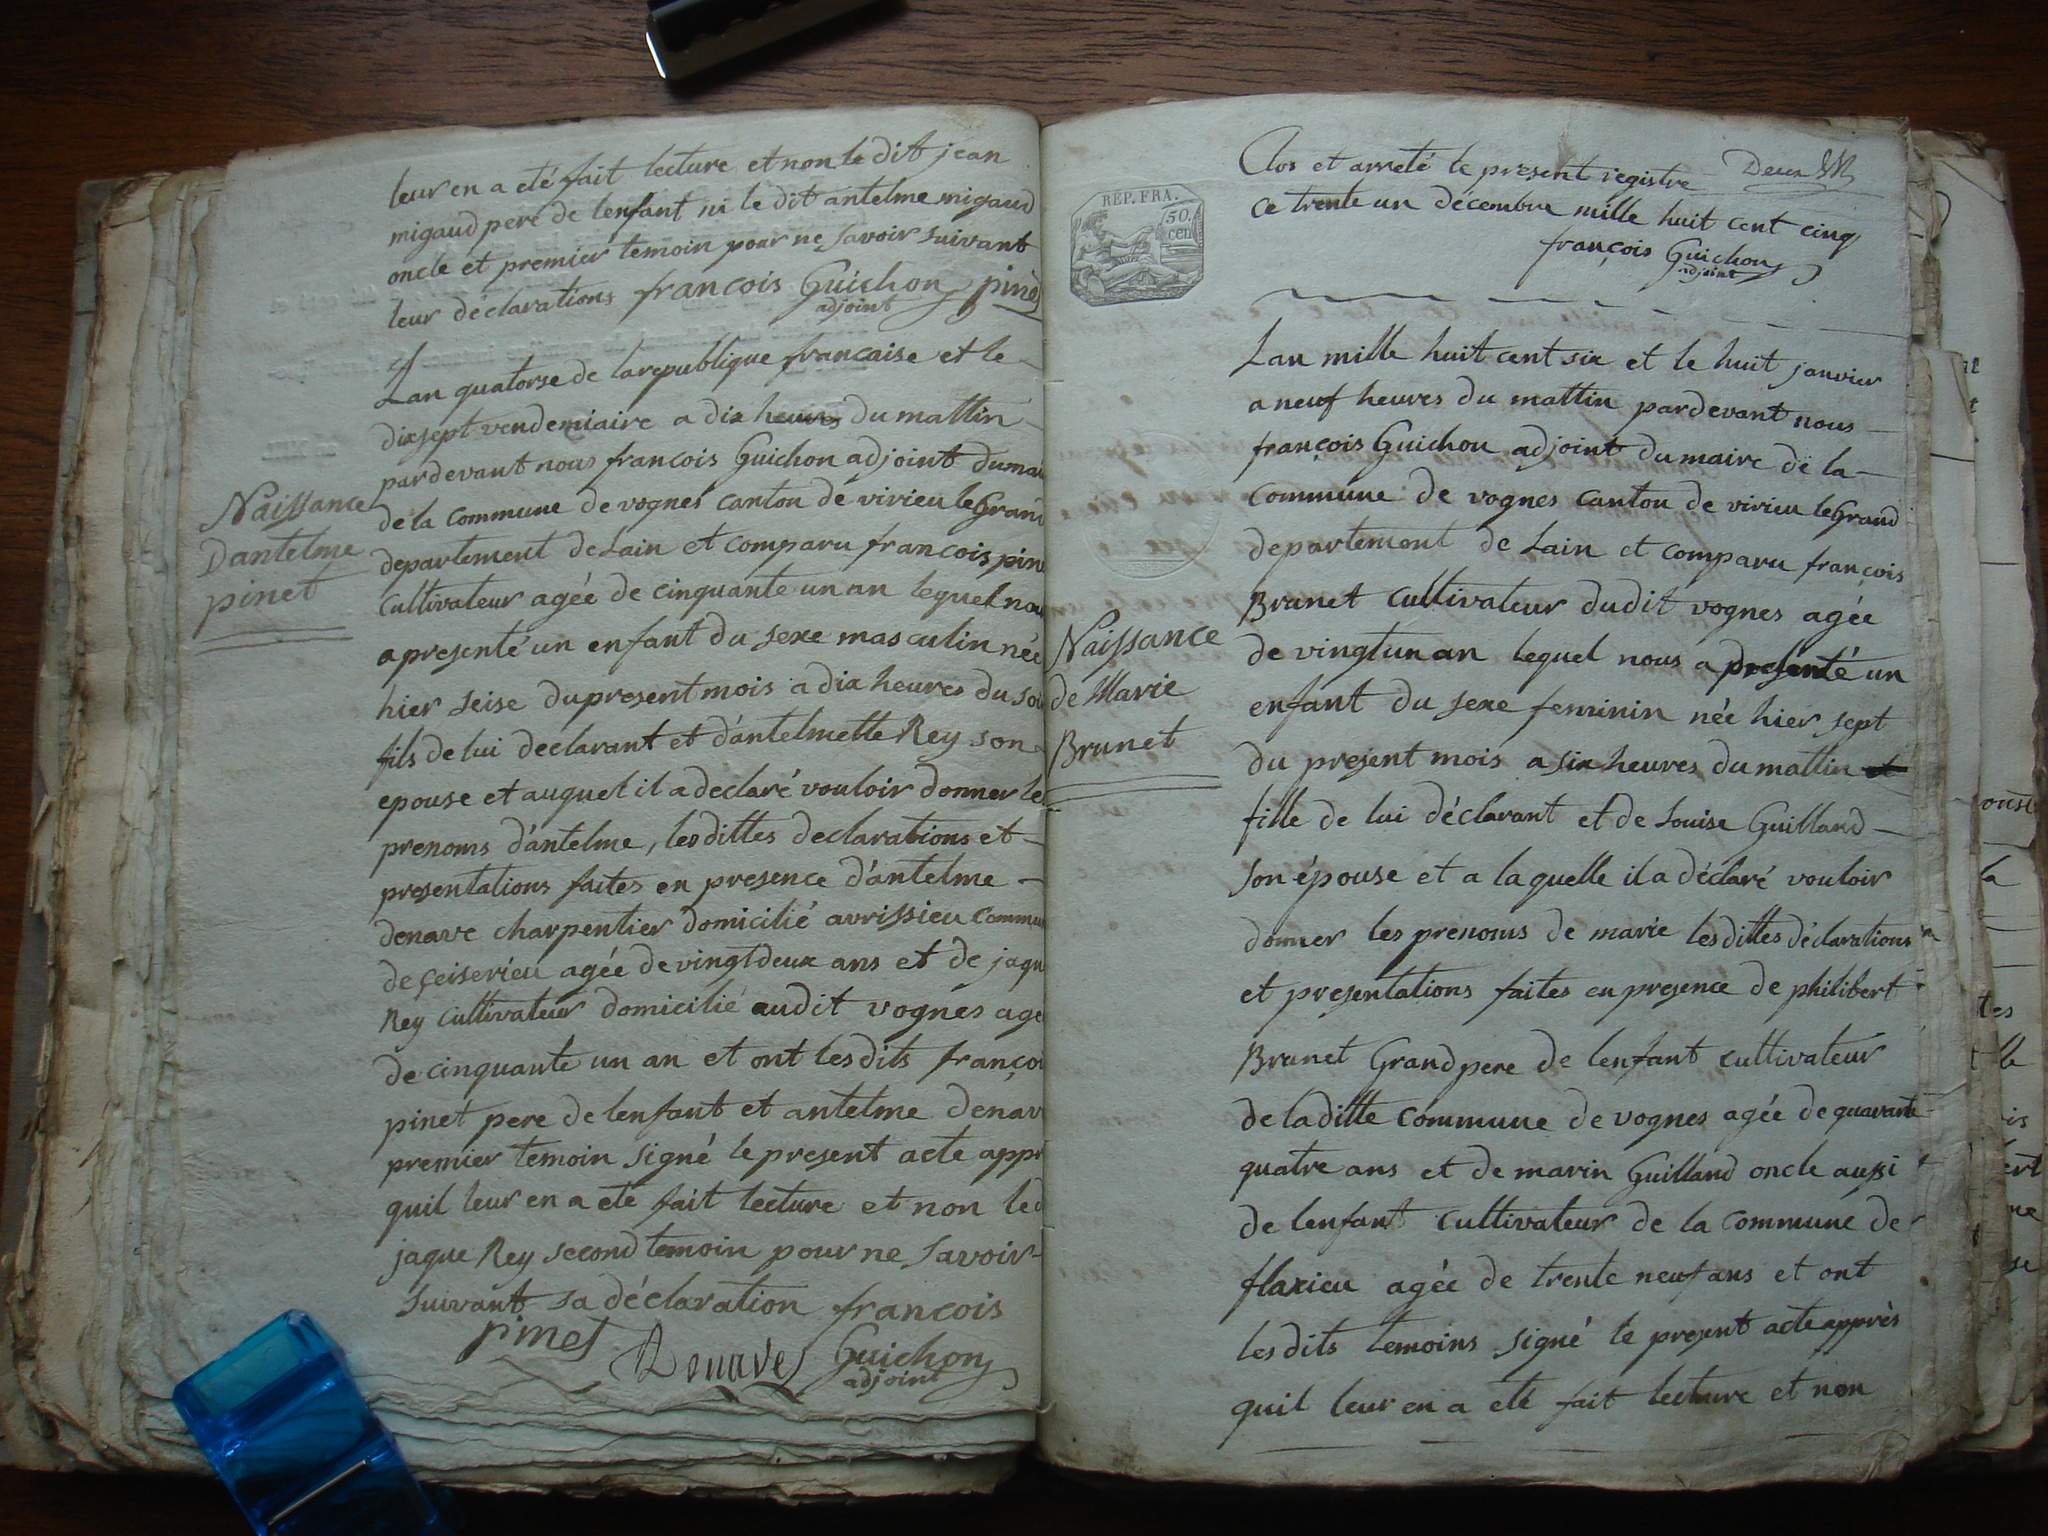 leur en a eté fait lecture et non le dit jean
migaud pere de lenfant ni le dit antelme migaud
oncle et premier temoin pour ne savoir suivant
leur déclarations francois Guichon pinet
adjoint
Lan quatorse de la republique francaise et le
dixsept vendemiaire a dix heures du mattin
pardevant nous francois Guichon adjoint du mai
de la commune de vognes canton de virieu le Grand
departement de Lain et comparu francois pin
Cultivateur agée de cinquante un an lequel nou
a presenté un enfant du sexe masculin née
hier seise du present mois a dix heures du soi
fils de lui declarant et dantelmette Rey son
epouse et auquel il a declaré vouloir donner le
prenoms dantelme, les dittes declarations et
presentations faites en presence dantelme
denave charpentier domicilié avrissieu commu
de ceiserieu agée de vingt deux ans et de jaqu
Rey cultivateur domicilié audit vognes age
de cinquante un an et ont les dits françoi
pinet pere de lenfant et antelme denav
premier temoin signé le present acte appr
quil leur en a ete fait lecture et non led
jaque Rey second temoin pour ne savoir
suivant sa déclaration francois
pinet Denave Guichon
adjoint
Naissance
Dantelme
pinet
RÉP. FRA.
50.
cen
Clos et arreté le present registre Deux
ce trente un décembre mille huit cent cinq
françois Guichon
adjoint
Lan mille huit cent six et le huit janvier
a neuf heures du mattin pardevant nous
françois Guichon adjoint du maire de la
Commune de vognes canton de virieu le Grand
departement de Lain et comparu françois
Brunet cultivateur dudit vognes agée
de vingt un an lequel nous a presenté un
enfant du sexe feminin née hier sept
du present mois a six heures du mattin et
fille de lui déclarant et de Louise Guilland
son épouse et a laquelle il a déclaré vouloir
donner les prenoms de marie les dittes déclarations
et presentations faites en presence de philibert
Brunet Grand pere de lenfant cultivateur
de la ditte commune de vognes agée de quarante
quatre ans et de marin Guilland oncle aussi
de lenfant cultivateur de la commune de
flaxieu agée de trente neuf ans et ont
les dits temoins signé le present acte apprès
quil leur en a eté fait lecture et non
Naissance
de Marie
Brunet